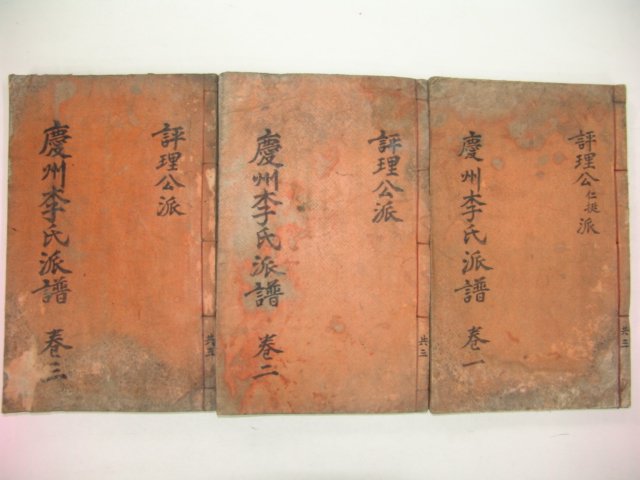 評理公仁挺派
共三
慶州李氏派譜 卷一
評理公派
共三
慶州李氏派譜 卷二
評理公派
共三
慶州李氏派譜 卷三